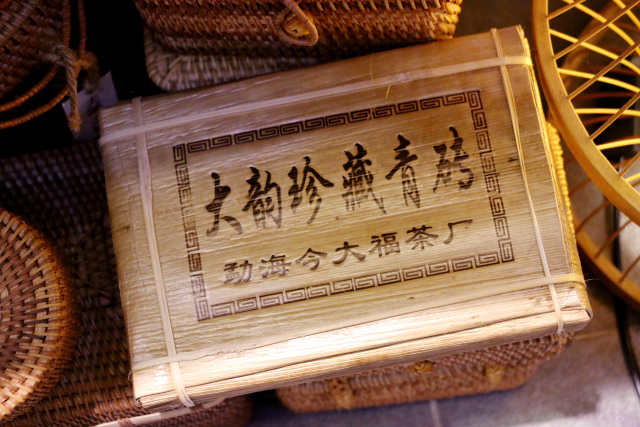 大韵珍藏青砖
勐海今大福茶厂